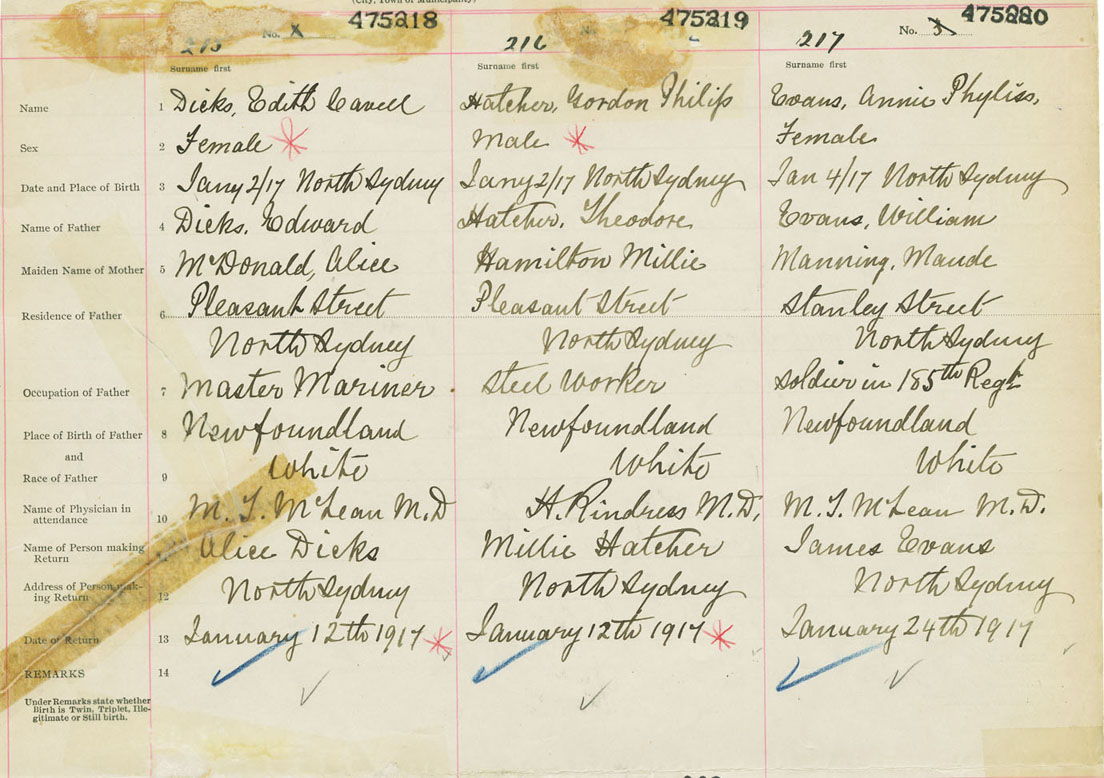 (City, Town or Municipality)
475218 475219 475220
215 No. 216 No. 217 No. 3
Surname first Surname first Surname first
Name 1 Dicks, Edith Cavell Hatcher, Gordon Philip Evans, Annie Phyliss,
Sex 2 Female Male Female
Date and Place of Birth 3 Jany 2/17 North Sydney Jany 2/17 North Sydney Jan 4/17 North Sydney
Name of Father 4 Dicks, Edward Hatcher, Theodore Evans, William
Maiden Name of Mother 5 McDonald, Alice Hamilton Millie Manning, Maude
Pleasant Street Pleasant Street Stanley Street
Residence of Father 6
North Sydney North Sydney North Sydney
Occupation of Father 7 Master Mariner Steel Worker Soldier in 185th Regt
Place of Birth of Father 8 Newfoundland Newfoundland Newfoundland
and
Race of Father 9 White White White
Name of Physician in
attendance 10 M. T. McLean M.D H. Rindress M.D. M. T. McLean M.D.
Name of Person making
Return Alice Dicks Millie Hatcher James Evans
Address of Person mak-
ing Return 12 North Sydney North Sydney North Sydney
Date of Return 13 January 12th 1917 January 12th 1917 January 24th 1917
REMARKS 14
Under Remarks state whether
Birth is Twin, Triplet, Ille-
gitimate or Still birth.